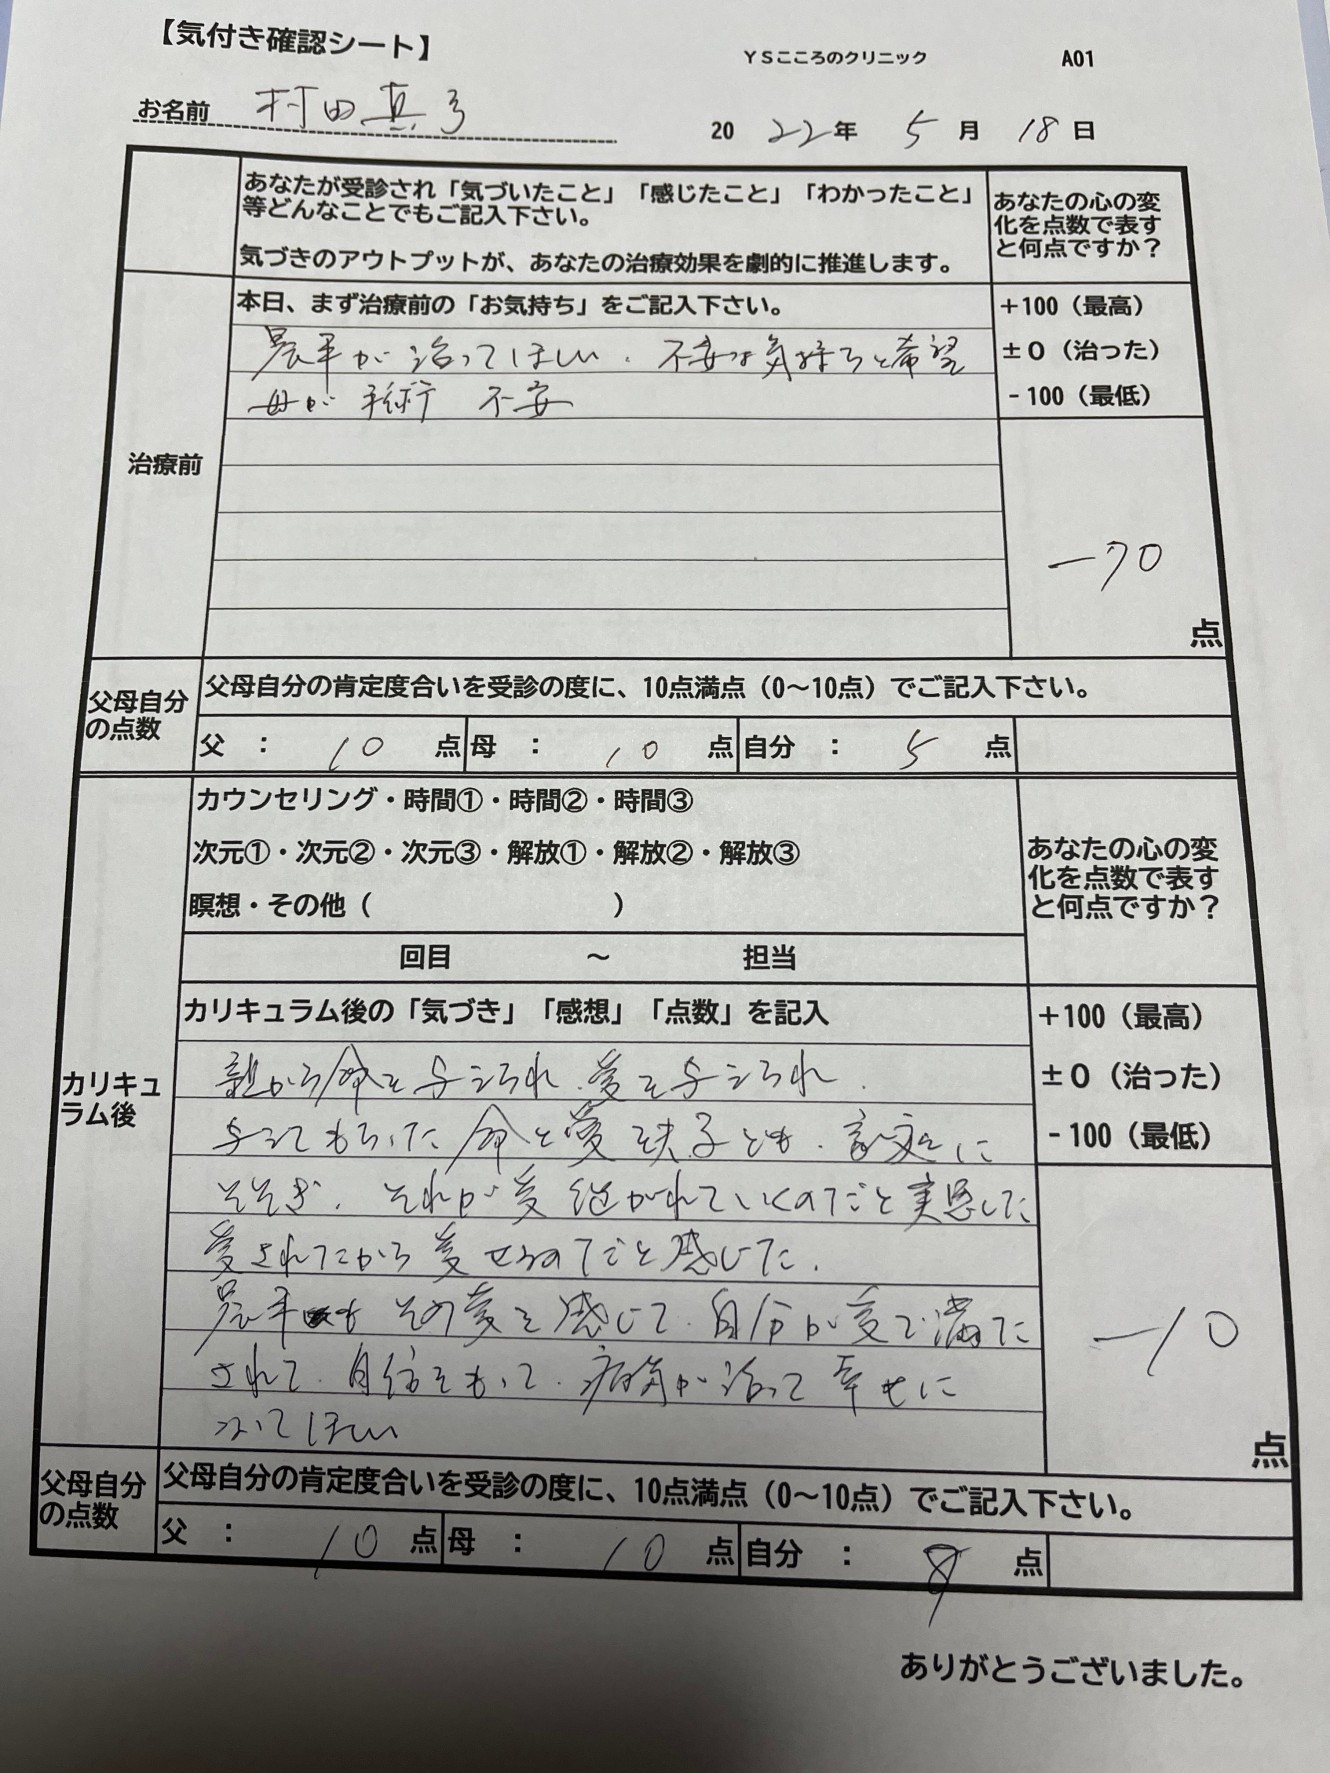 【気付き確認シート】
YSこころのクリニック A01
お名前 村田真弓
2022年5月18日
あなたが受診され「気づいたこと」「感じたこと」「わかったこと」
等どんなことでもご記入下さい。
気づきのアウトプットが、あなたの治療効果を劇的に推進します。
あなたの心の変
化を点数で表す
と何点ですか？
治療前
本日、まず治療前の「お気持ち」をご記入下さい。
晨平が治ってほしい、不安な気持ちと希望
母が 手術 不安
+100（最高）
±0（治った）
-100（最低）
-70
点
父母自分
の点数
父母自分の肯定度合いを受診の度に、10点満点（0～10点）でご記入下さい。
父 ： 10 点 母 ： 10 点 自分 ： 5 点
カリキュ
ラム後
カウンセリング・時間①・時間②・時間③
次元①・次元②・次元③・解放①・解放②・解放③
瞑想・その他（ ）
回目 ～ 担当
あなたの心の変
化を点数で表す
と何点ですか？
カリキュラム後の「気づき」「感想」「点数」を記入
親から命を与えられ、愛を与えられ、
与えてもらった命と愛を夫、子ども、家庭に
そそぎ、それが受継がれていくのだと実感した
愛されたから愛せるのだと感じた。
晨平もその愛を感じて、自分が愛で満た
されて、自信をもって、病気が治って幸せに
なってほしい
+100（最高）
±0（治った）
-100（最低）
-10
点
父母自分
の点数
父母自分の肯定度合いを受診の度に、10点満点（0～10点）でご記入下さい。
父 ： 10 点 母 ： 10 点 自分 ： 8 点
ありがとうございました。